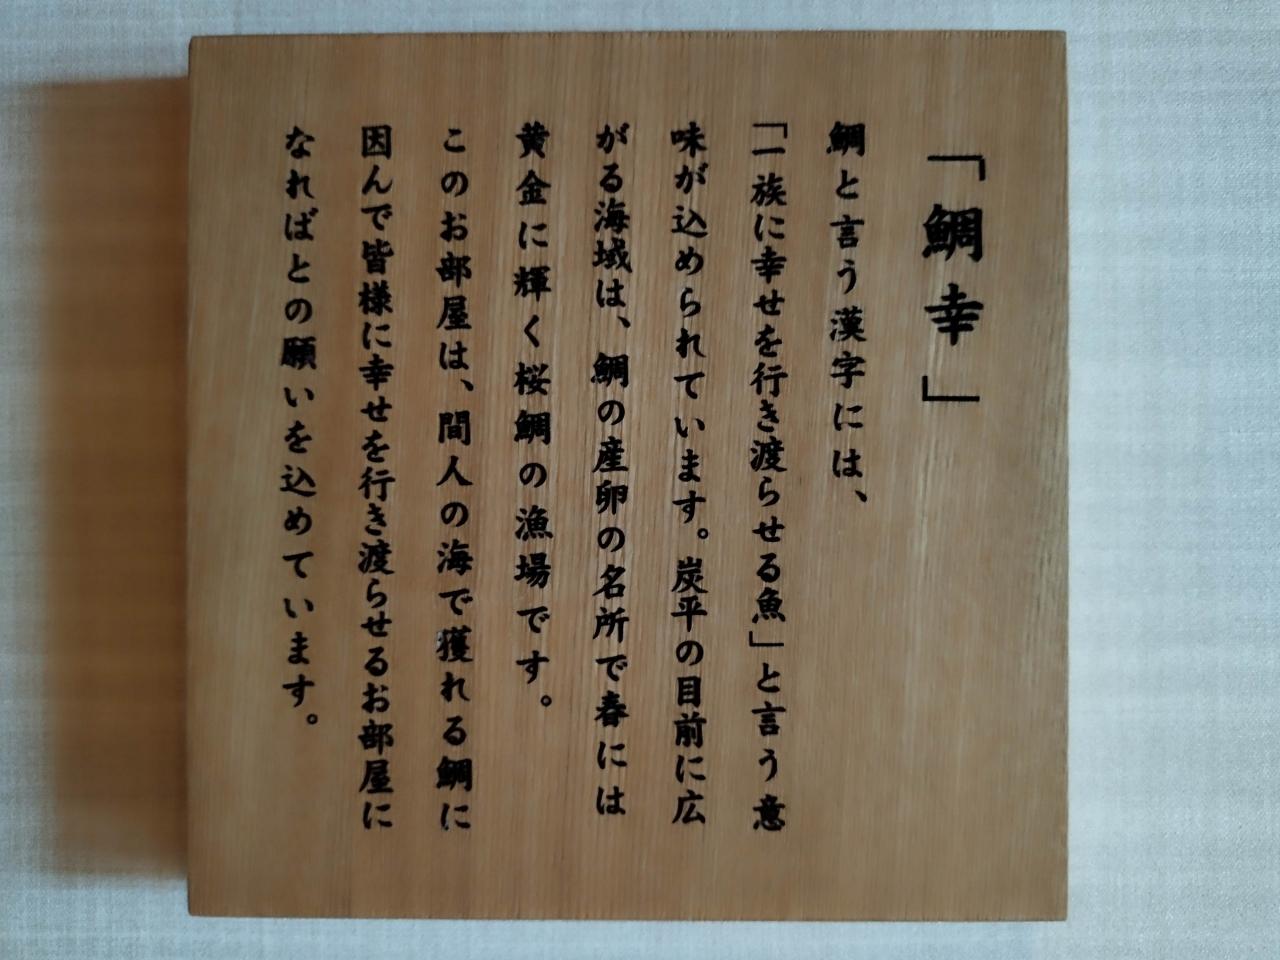 「鯛幸」
鯛と言う漢字には、
「一族に幸せを行き渡らせる魚」と言う意
味が込められています。炭平の目前に広
がる海域は、鯛の産卵の名所で春には
黄金に輝く桜鯛の漁場です。
このお部屋は、間人の海で獲れる鯛に
因んで皆様に幸せを行き渡らせるお部屋に
なればとの願いを込めています。